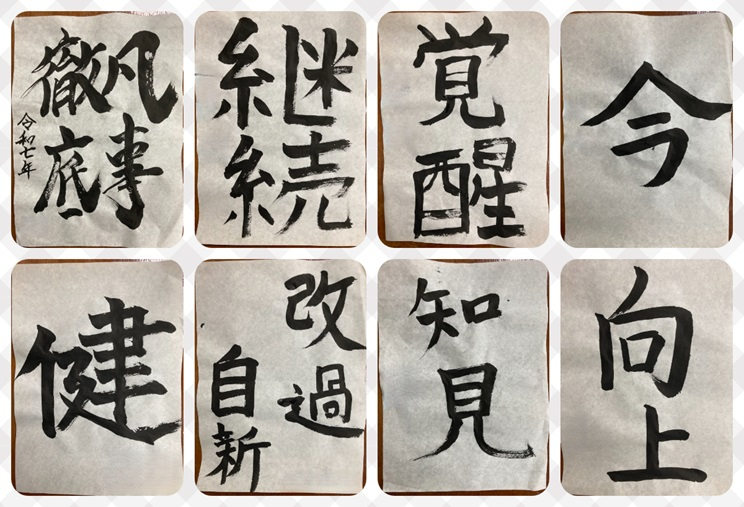 凡事
徹底
令和七年
継続
覚醒
今
健
改過
自新
知見
向上